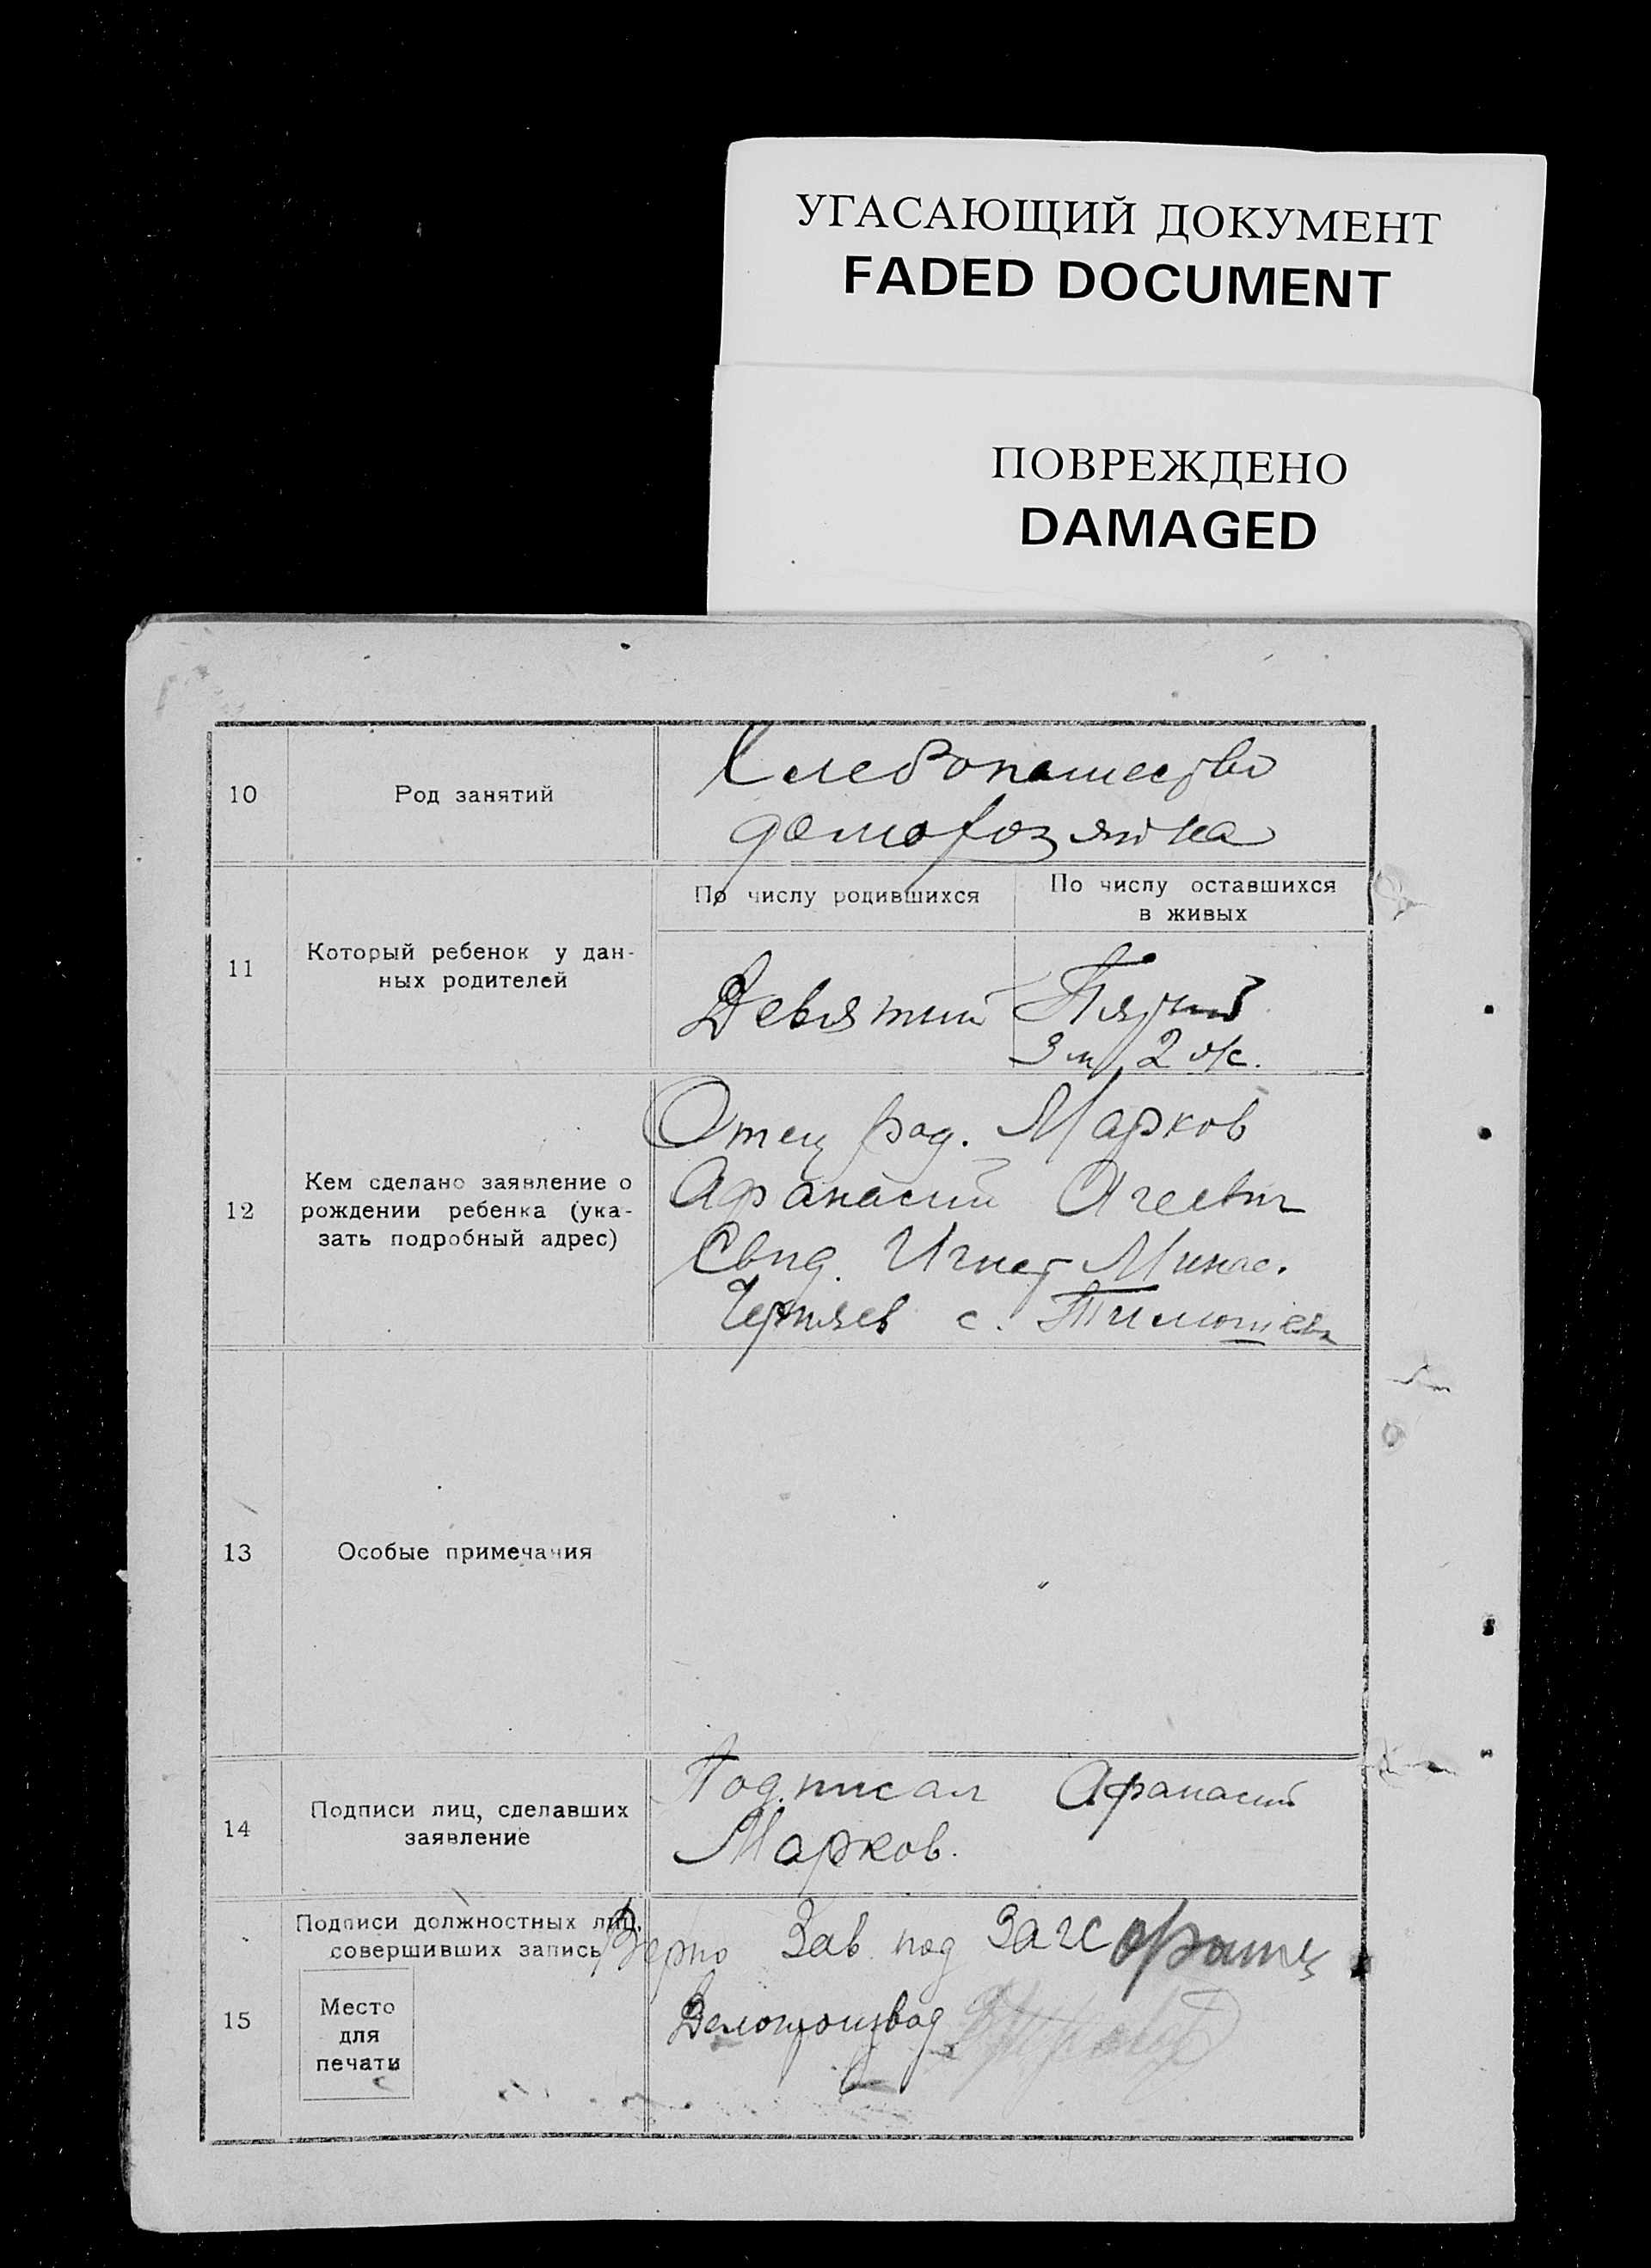 УГАСАЮЩИЙ ДОКУМЕНТ
FADED DOCUMENT
ПОВРЕЖДЕНО
DAMAGED
10
Род занятий
Хлебопашество
домохозяйка
11
Который ребенок у дан-
ных родителей
По числу родившихся
По числу оставшихся
в живых
Девятий
Пятий
3 м 2 ж.
12
Кем сделано заявление о
рождении ребенка (ука-
зать подробный адрес)
Отец род. Марков
Афанасий Агеевич
Свид. Игнат
Черняев с.
13
Особые примечания
14
Подписи лиц, сделавших
заявление
Подписал Афанасий
Марков.
15
Подписи должностных лиц,
совершивших запись
Место
для
печати
Верно Зав. под ЗАГС
Делопроизвод